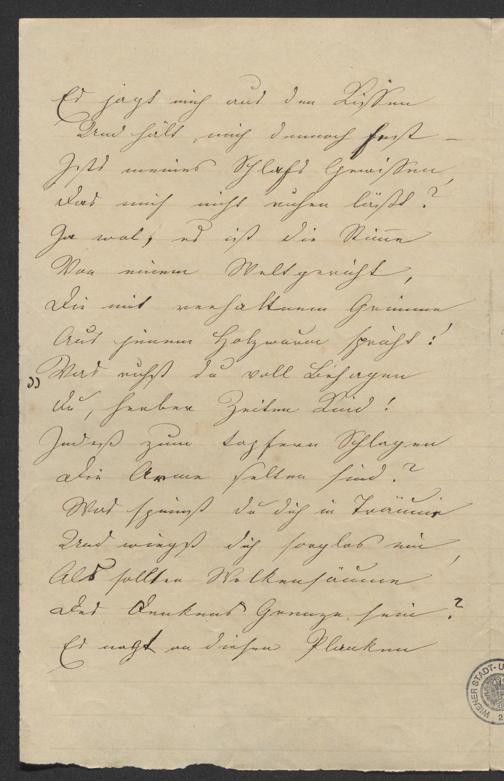 Es jagt mich aus den Kissen
Und hält mich dennoch fest –
Ists meines Schlafs Gewissen,
Das mich nicht ruhen läßt?
Ja wol, es ist die Stimme
Von einem Weltgericht,
Die mit verhaltnem Grimme
Aus jenem Holzwurm spricht:
"Was ruhst du voll Behagen
Du, herber Zeiten Kind!
Indeß zum tapfern Schlagen
Die Arme selten sind?
Was spinnst du dich in Träume
Und wiegst dich sorglos ein,
Als sollten Wolkensäume
Des Denkens Grenze sein?
Es nagt an diesen Planken
WIENER STADT-U